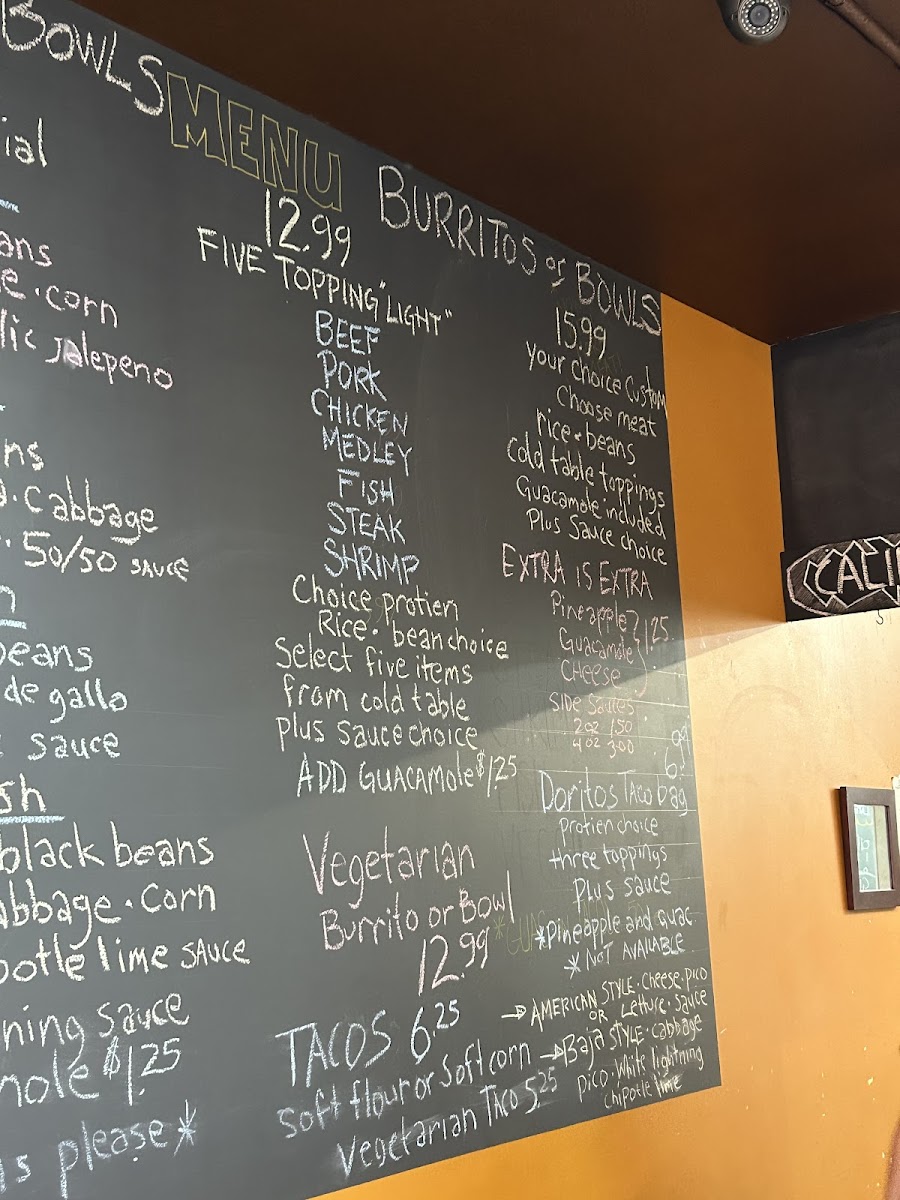 BOWLS
MENU
ial
ans
e.corn
lic Jalepeno
ns
a.cabbage
50/50 sauce
n
beans
de gallo
sauce
sh
black beans
abbage.corn
potle lime sauce
ning sauce
mole $1.25
s please*
12.99
FIVE TOPPING "LIGHT"
BEEF
PORK
CHICKEN
MEDLEY
FISH
STEAK
SHRIMP
Choice protien
Rice. bean choice
Select five items
from cold table
plus sauce choice
ADD GUACAMOLE $1.25
Vegetarian
Burrito or Bowl
12.99
TACOS 6.25
soft flour or soft corn
Vegetarian Taco 5.25
BURRITOS or BOWLS
15.99
your choice custom
Choose meat
rice.beans
Cold table toppings
Guacamole included
Plus Sauce choice
EXTRA iS EXTRA
Pineapple } 1.25
Guacamole
CHEESE
SIDE SAUCES
2oz 1.50
4oz 3.00
6.99
Doritos Taco bag
Protien choice
three toppings
Plus sauce
*Pineapple and guac
* NOT AVAILABLE
→AMERICAN STYLE.Cheese.pico
OR Lettuce.sauce
→Baja STYLE.cabbage
pico.White lightning
chipotle lime
CALI